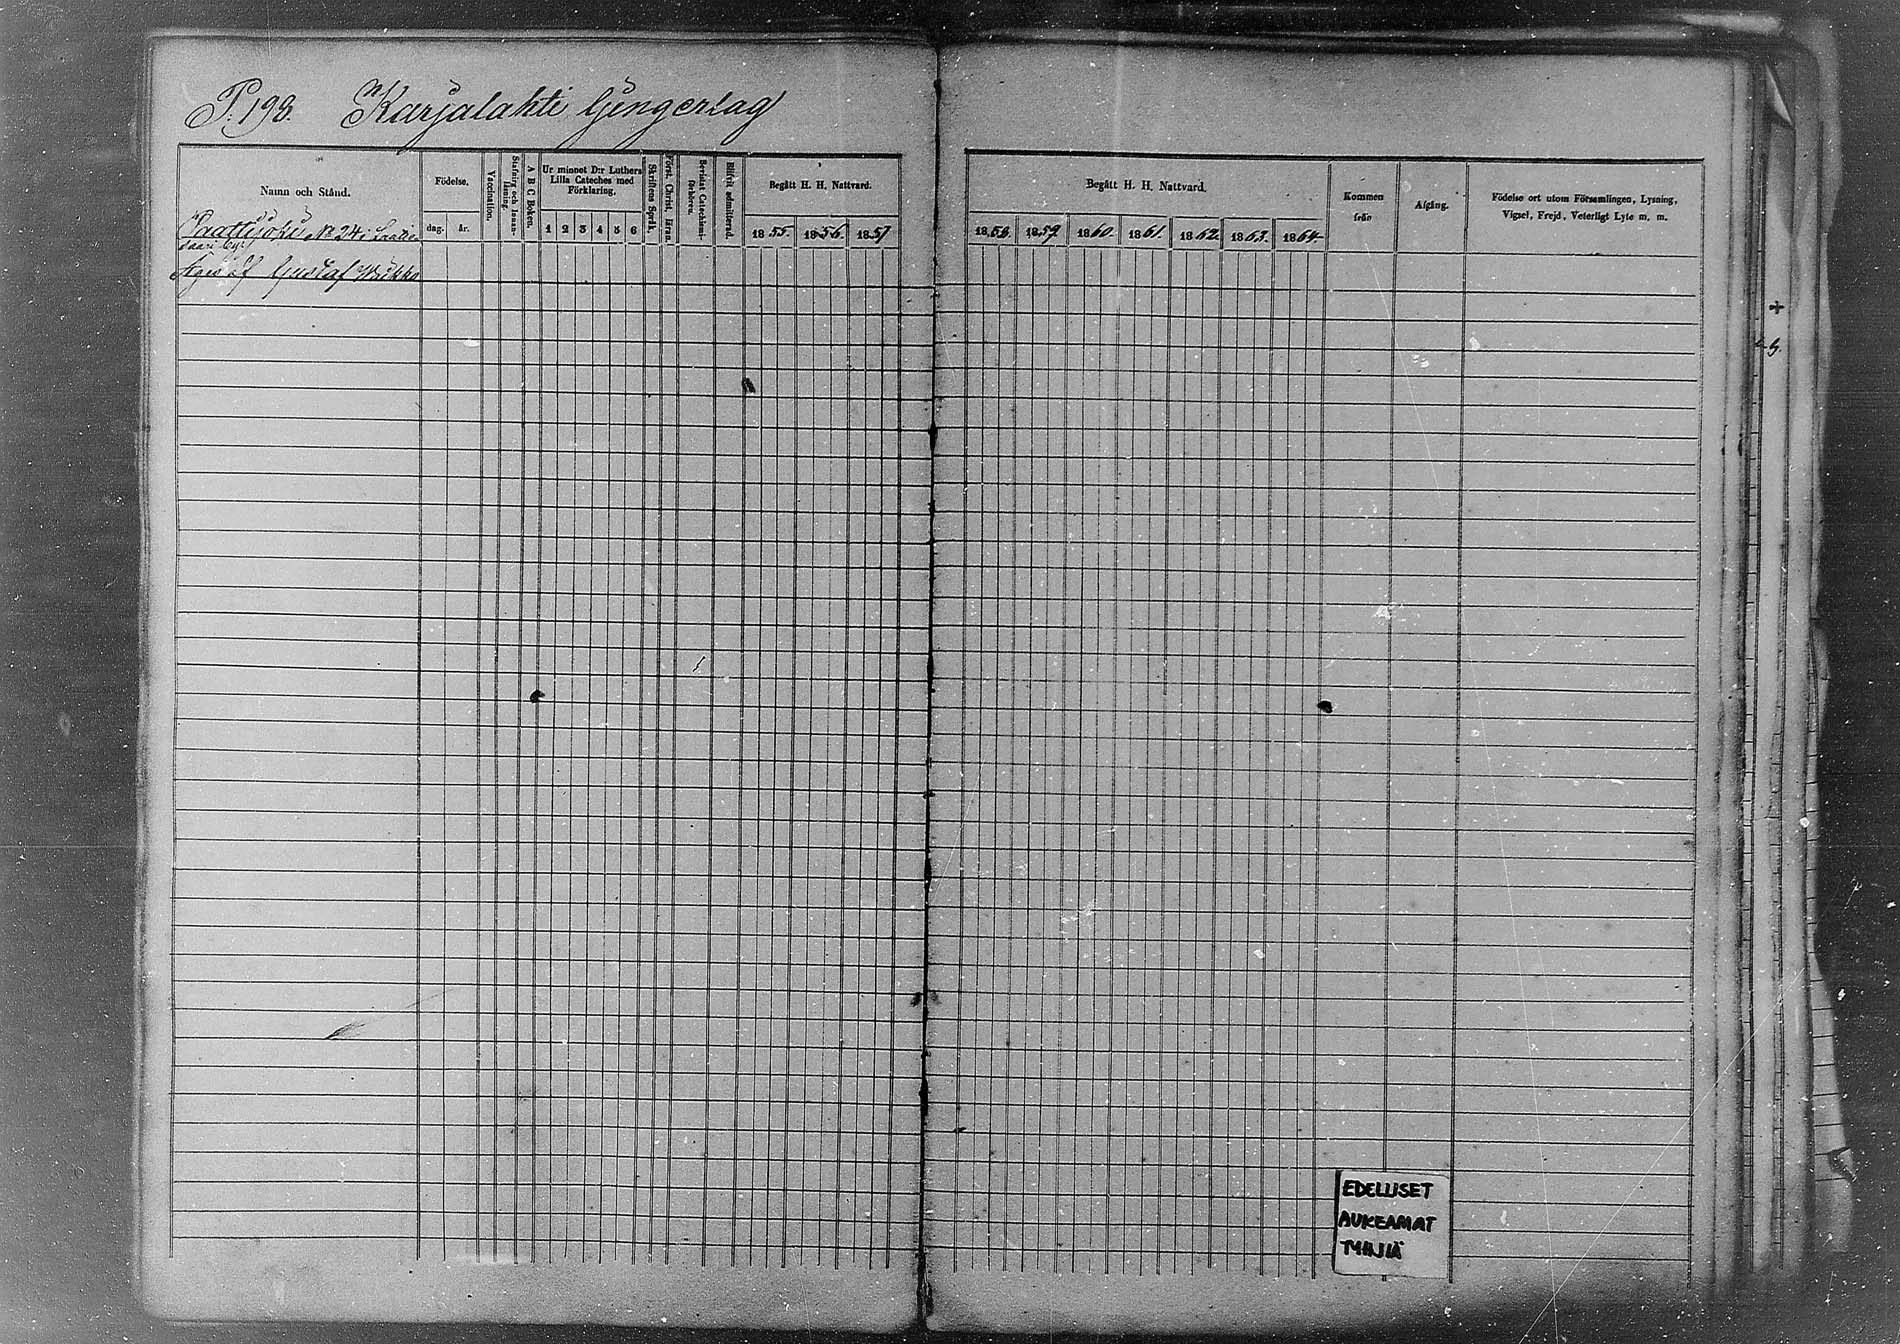 P. 198. Karjalahti
Namn och Stånd.
Födelse.
dag. år.
Vaccination.
Stafning och Innan-läsning.
A B C Boken.
Ur minnet D:r Luthers
Lilla Cateches med
Förklaring.
1 2 3 4 5 6
Skriftens Språk.
Först. Christ. läran.
Bevistat Catechismi-förhören.
Blifvit admitterad.
Begått H. H. Nattvard.
1855. 1856. 1857
Begått H. H. Nattvard.
1858. 1859. 1860. 1861. 1862. 1863. 1864.
Kommen
från
Afgång.
Födelse ort utom Församlingen, Lysning,
Vigsel, Frejd, Veterligt Lyte m. m.
No 24 i
saari by.
Gustaf
EDELLISET
AUKEAMAT
TYHJIÄ